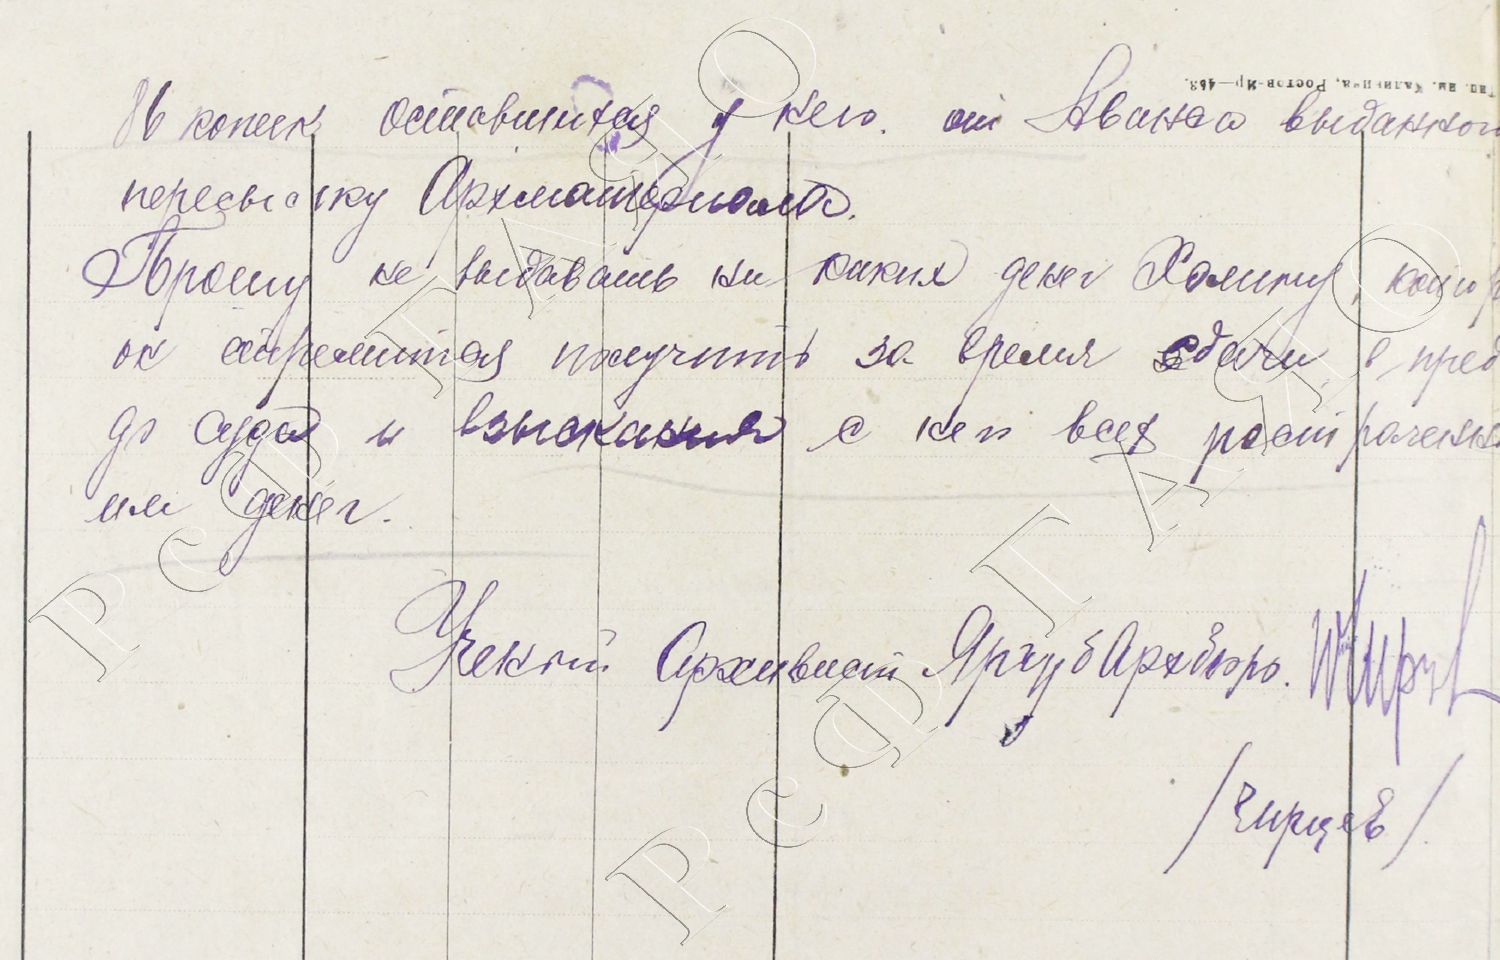 Тип. им. Калинина, Ростов-Яр—468.
86 копеек оставшихся у него от Аванса выданного
пересылку Архматериала.
Прошу не выдавать ни каких денег Холину, котор
он стремится получить за время сдачи в пред
до суда и взыскания с него всех растраченных
им денег.
Ученый Архивист ЯргубАрхбюро.
/Чирцев/
РсФ ГАЯО
РсФ ГАЯО